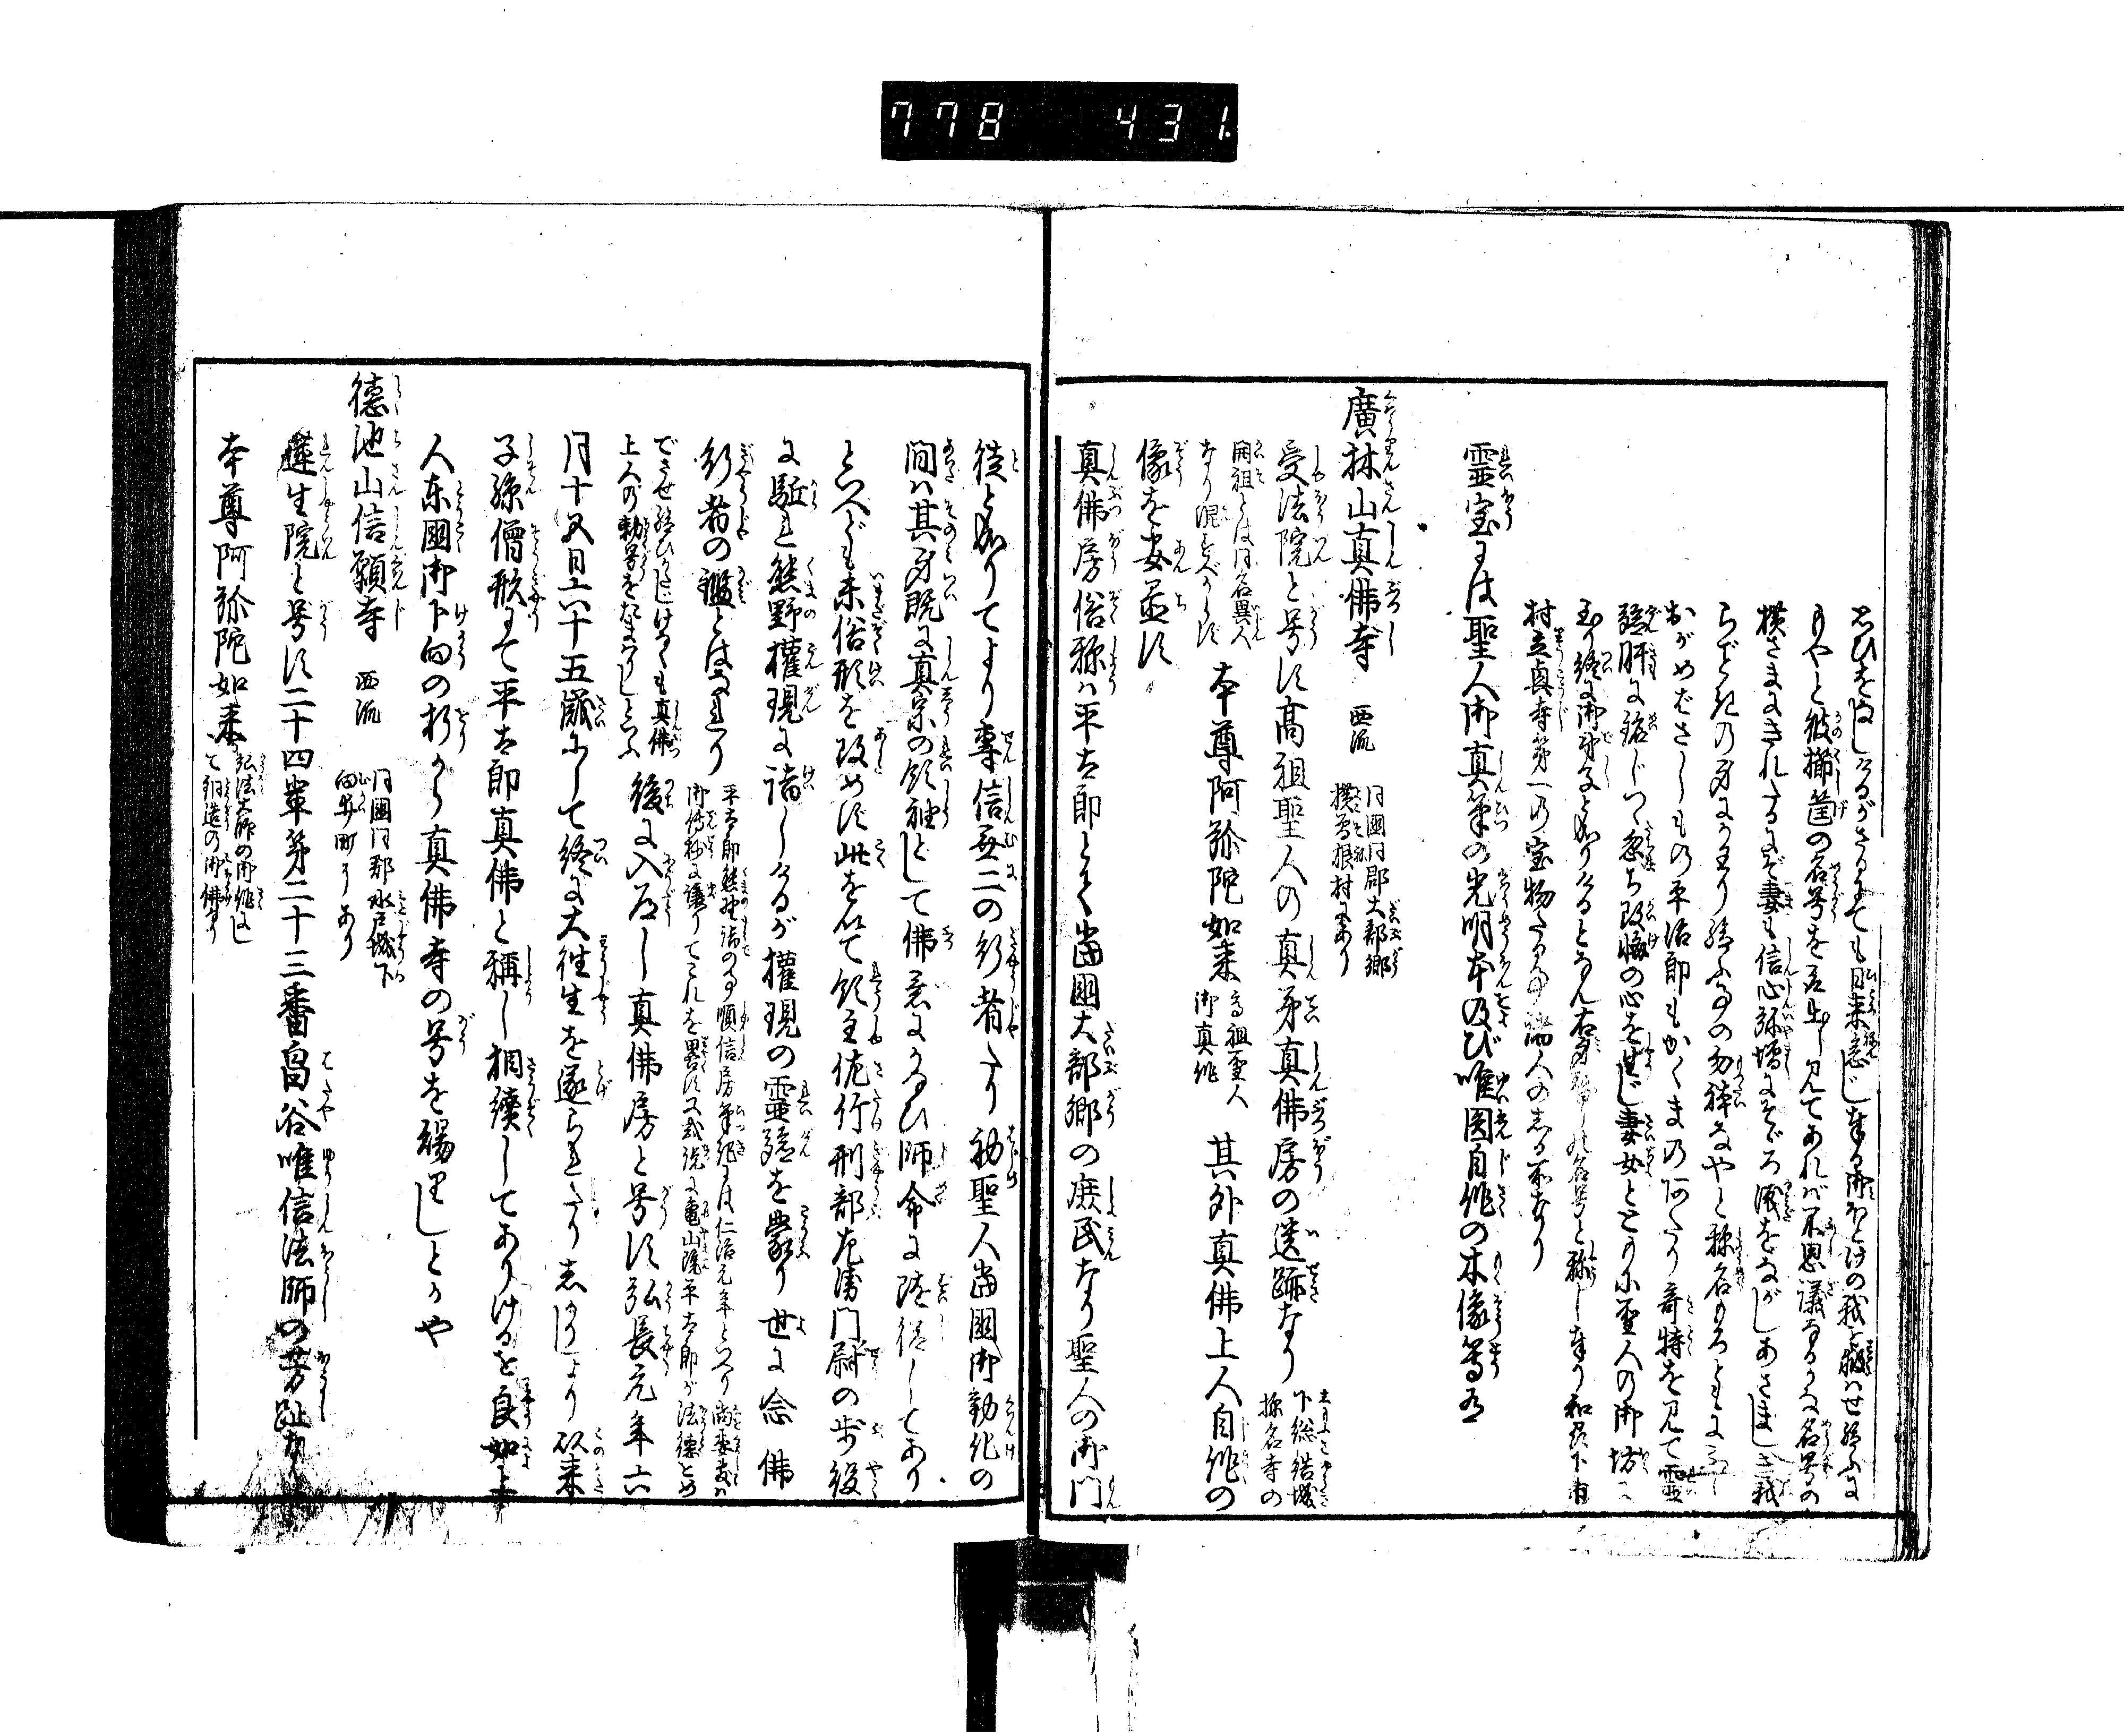 778 431.
思ひをなしけるがさるにても日来念じ奉る御ほとけの我を救はせ給ふに
もやと彼櫛筐の名号を取出し見てあれば不思議なるかな名号の
横さまにきれたるにぞ妻も信心弥増にそゞろ涙をながしあさましき我
らごときの身にかはり給ふ事の勿体なやと称名もろともに
おがめばさしもの平治郎もかくまのあたり奇特を見て霊
験肝に銘じつゝ忽ち改悔の心を生じ妻女とともに聖人の御坊に
参り終に御弟子と成けるとなん右身代の名号と称し奉り
村立真寺第一の宝物たる事諸人のしる所なり
霊宝には聖人御真筆の光明本及び唯圓自作の木像等有
廣林山真佛寺 西流 同國同郡大部郷
横曽根村にあり
受法院と号す高祖聖人の真弟真佛房の遺跡なり 下総結城
称名寺の
開祖とは同名異人
なり混ずべからず 本尊阿弥陀如来 高祖聖人
御真作 其外真佛上人自作の
像を安置す
真佛房俗称ハ平太郎とて當國大部郷の庶民なり聖人の御門
徒と成りてより専信無二の行者たり初聖人當國御勧化の
間ハ其身既に真宗の領袖として佛意にかなひ師命に随従してあり
といへども未俗形を改めず此を以て領主佐竹刑部左衛門尉の歩役
に駈れ熊野権現に詣しけるが権現の霊験を蒙り世に念佛
行者の鑑とはなれり 平太郎熊野詣の事順信房筆記には仁治元年といへり尚委敷ハ
御傳抄に譲りてこれを畧す又或説に亀山院平太郎が法徳をめ
でさせ給ひかしけなくも真佛
上人の勅号をたまハりしといふ 後に入道し真佛房と号す弘長元年六
月十五日六十五歳にして終に大往生を遂られたり志かりしより以来
子孫僧形にて平太郎真佛と稱し相續してありけるを良如上
人東國御下向の折から真佛寺の号を賜りしとかや
徳池山信願寺 西流 同國同郡水戸城下
田井町にあり
蓮生院と号す二十四輩第二十三番畠谷唯信法師の芳趾なり
本尊阿弥陀如来 弘法大師の御作にし
て銅造の御佛なり